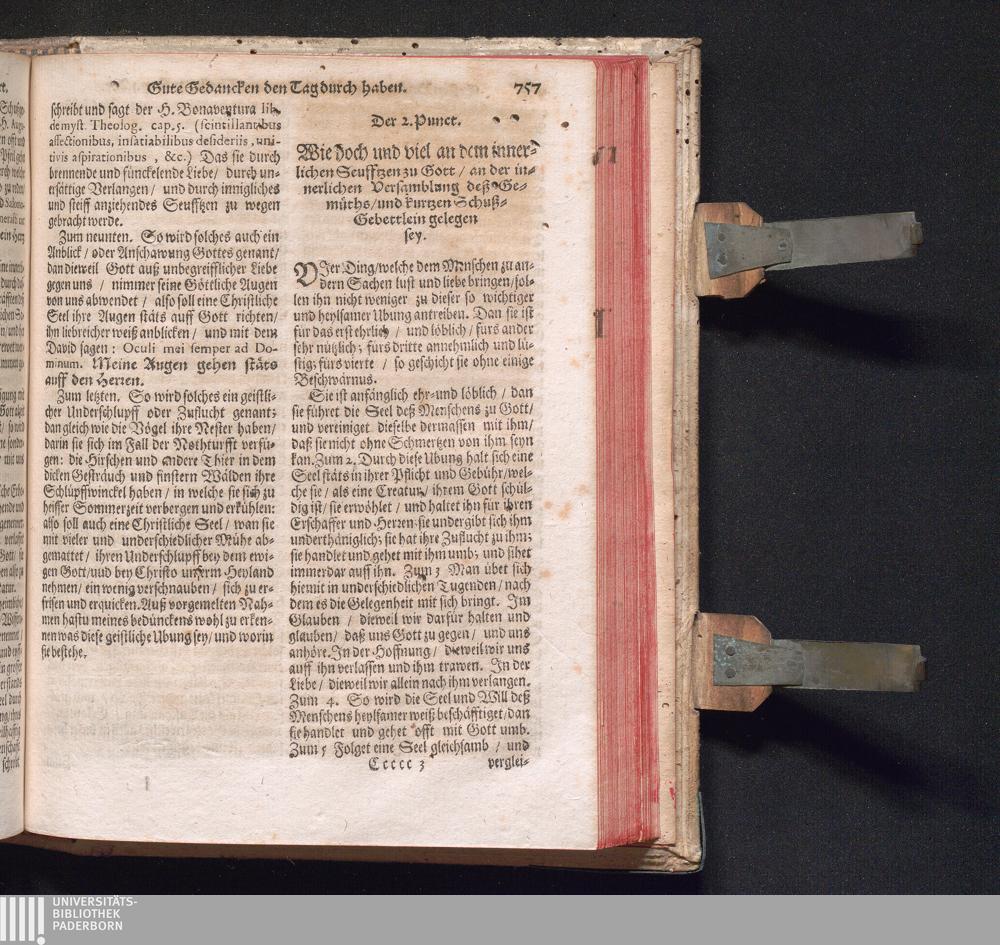 Gute Gedancken den Tag durch haben. 757
schreibt und sagt der H. Bonaventura lib.
de myst. Theolog. cap. 5. (scintillantibus
affectionibus, insatiabilibus desideriis, uni-
tivis aspirationibus, &c.) Das sie durch
brennende und fünckelende Liebe / durch un-
ersättige Verlangen / und durch innigliches
und steiff anziehendes Seufftzen zu wegen
gebracht werde.
Zum neunten. So wird solches auch ein
Anblick / oder Anschawung Gottes genant /
dan dieweil Gott auß unbegreifflicher Liebe
gegen uns / nimmer seine Göttliche Augen
von uns abwendet / also soll eine Christliche
Seel ihre Augen stäts auff Gott richten /
ihn liebreicher weiß anblicken / und mit dem
David sagen: Oculi mei semper ad Do-
minum. Meine Augen gehen stäts
auff den Herren.
Zum letzten. So wird solches ein geistli-
cher Underschlupff oder Zuflucht genant;
dan gleich wie die Vögel ihre Nester haben /
darin sie sich im Fall der Nothturfft verfü-
gen: die Hirschen und andere Thier in dem
dicken Gesträuch und finstern Wälden ihre
Schlupffwinckel haben / in welche sie sich zu
heisser Sommerzeit verbergen und erkühlen:
also soll auch eine Christliche Seel / wan sie
mit vieler und underschiedlicher Mühe ab-
gemattet / ihren Underschlupff bey dem ewi-
gen Gott / uud bey Christo unserm Heyland
nehmen / ein wenig verschnauben / sich zu er-
frisen und erquicken. Auß vorgemelten Nah-
men hastu meines bedünckens wohl zu erken-
nen was diese geistliche Ubung sey / und worin
sie bestehe.
Der 2. Punct.
Wie hoch und viel an dem inner-
lichen Seufftzen zu Gott / an der in-
nerlichen Versamblung deß Ge-
müths / und kurtzen Schuß-
Gebettlein gelegen
sey.
VIer Ding / welche dem Menschen zu an-
dern Sachen lust und liebe bringen / sol-
len ihn nicht weniger zu dieser so wichtiger
und heylsamer Ubung antreiben. Dan sie ist
für das erst ehrlich / und löblich / fürs ander
sehr nützlich; fürs dritte annehmlich und lu-
stig; fürs vierte / so geschicht sie ohne einige
Beschwärnus.
Sie ist anfänglich ehr- und löblich / dan
sie führet die Seel deß Menschens zu Gott /
und vereiniget dieselbe dermassen mit ihm /
daß sie nicht ohne Schmertzen von ihm seyn
kan. Zum 2. Durch diese Ubung halt sich eine
Seel stäts in ihrer Pflicht und Gebühr / wel-
che sie / als eine Creatur / ihrem Gott schül-
dig ist / sie erwöhlet / und haltet ihn für ihren
Erschaffer und Herren: sie undergibt sich ihm
underthäniglich; sie hat ihre Zuflucht zu ihm;
sie handlet und gehet mit ihm umb; und sihet
immerdar auff ihn. Zum 3 Man übet sich
hiemit in underschiedlichen Tugenden / nach
dem es die Gelegenheit mit sich bringt. Im
Glauben / dieweil wir darfür halten und
glauben / daß uns Gott zu gegen / und uns
anhöre. In der Hoffnung / dieweil wir uns
auff ihn verlassen und ihm trawen. In der
Liebe / dieweil wir allein nach ihm verlangen.
Zum 4. So wird die Seel und Will deß
Menschens heylsamer weiß beschäfftiget / dan
sie handlet und gehet offt mit Gott umb.
Zum 5 Folget eine Seel gleichsamb / und
Ccccc 3 verglei-
UNIVERSITÄTS-
BIBLIOTHEK
PADERBORN